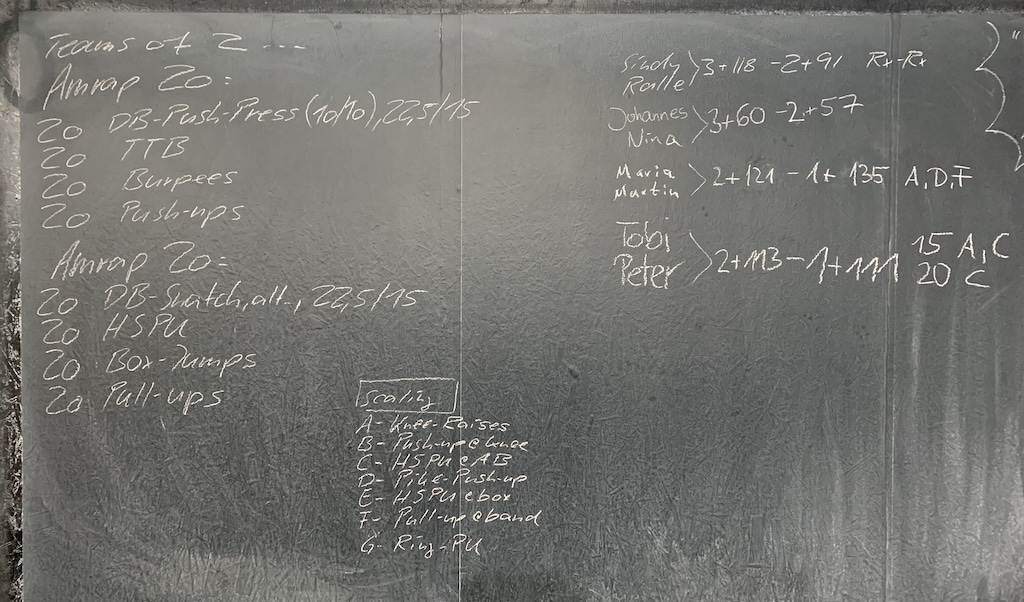 Teams of 2 ...
Amrap 20:
20 DB-Push-Press (10/10), 22,5/15
20 TTB
20 Burpees
20 Push-ups
Amrap 20:
20 DB-Snatch, alt., 22,5/15
20 HSPU
20 Box-Jumps
20 Pull-ups
Scaling
A- Knee-Raises
B- Push-up@knee
C- HSPU@AB
D- Pike-Push-up
E- HSPU@box
F- Pull-up@band
G- Ring-PU
Sindy
Ralle
3+118 -2+91 Rx-Rx
Johannes
Nina
3+60 -2+57
Maria
Martin
2+121 - 1+135 A,D,F
Tobi
Peter
2+113 - 1+111
15 A,C
20 C